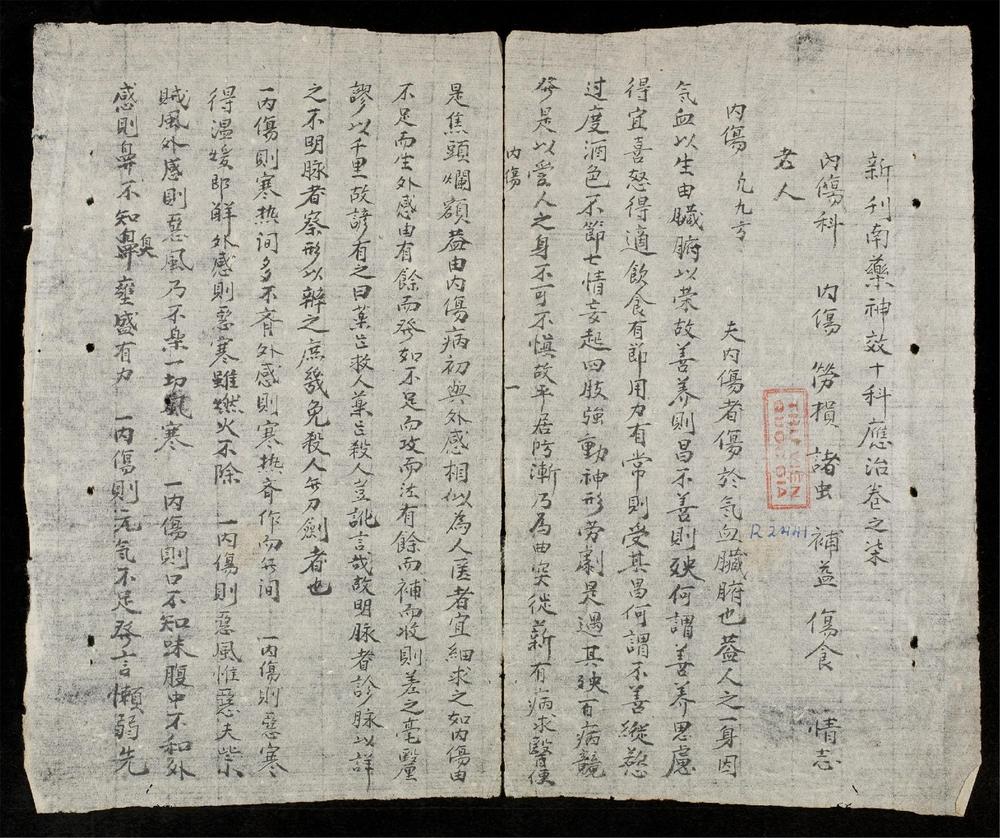 新刊南藥神效十科應治卷之柒
內傷科　內傷　勞損　諸虫　補益　傷食　情志
老人
內傷　九九方　夫內傷者傷於氣血臟腑也蓋人之一身因
気血以生由臟腑以荣故善养則昌不善則殃何謂善养思慮
得宜喜怒得適飲食有節用力有常則受其昌何謂不善縱慾
过度酒色不節七情妄起四肢強動神形劳劇是遇其殃百病競
發是以爱人之身不可不慎故平居防漸乃為曲突徙薪有病求醫便
內傷　一
是焦頭爛額蓋由內傷病初與外感相似為人医者宜細求之如內傷由
不足而生外感由有餘而發如不足而攻而法有餘而補而收則差之毫釐
謬以千里故諺有之曰藥芒救人藥芒殺人豈訛言哉故明脉者診脉以詳
之不明脉者察形以辨之庶幾免殺人無刀劍者也
一內傷則寒热间多不齐外感則寒热齐作而無间　一內傷則惡寒
得温媛即解外感則惡寒雖燃火不除　一內傷則惡風惟惡夫些小
賊風外感則惡風乃不槼一切風寒　一內傷則口不知味腹中不和外
感則鼻不知臭鼻壅盛有力　一內傷則元气不足發言懶弱先
THU VIEN
QUOC GIA
R2441